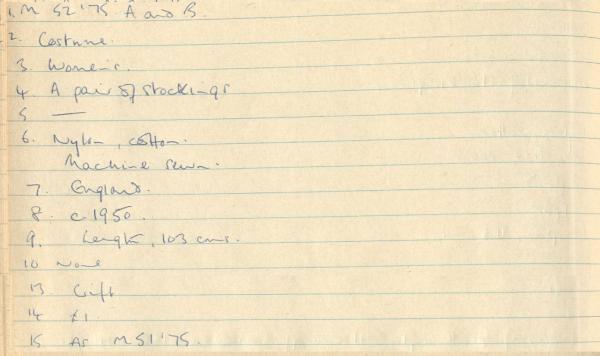 1. M 52 '75 A and B.
2. Costume.
3. Women's.
4. A pair of stockings
5 —
6. Nylon, cotton.
Machine sewn.
7. England.
8. c. 1950.
9. Length, 103 cms.
10 None
13 Gift
14 £1
15 As M51 '75.